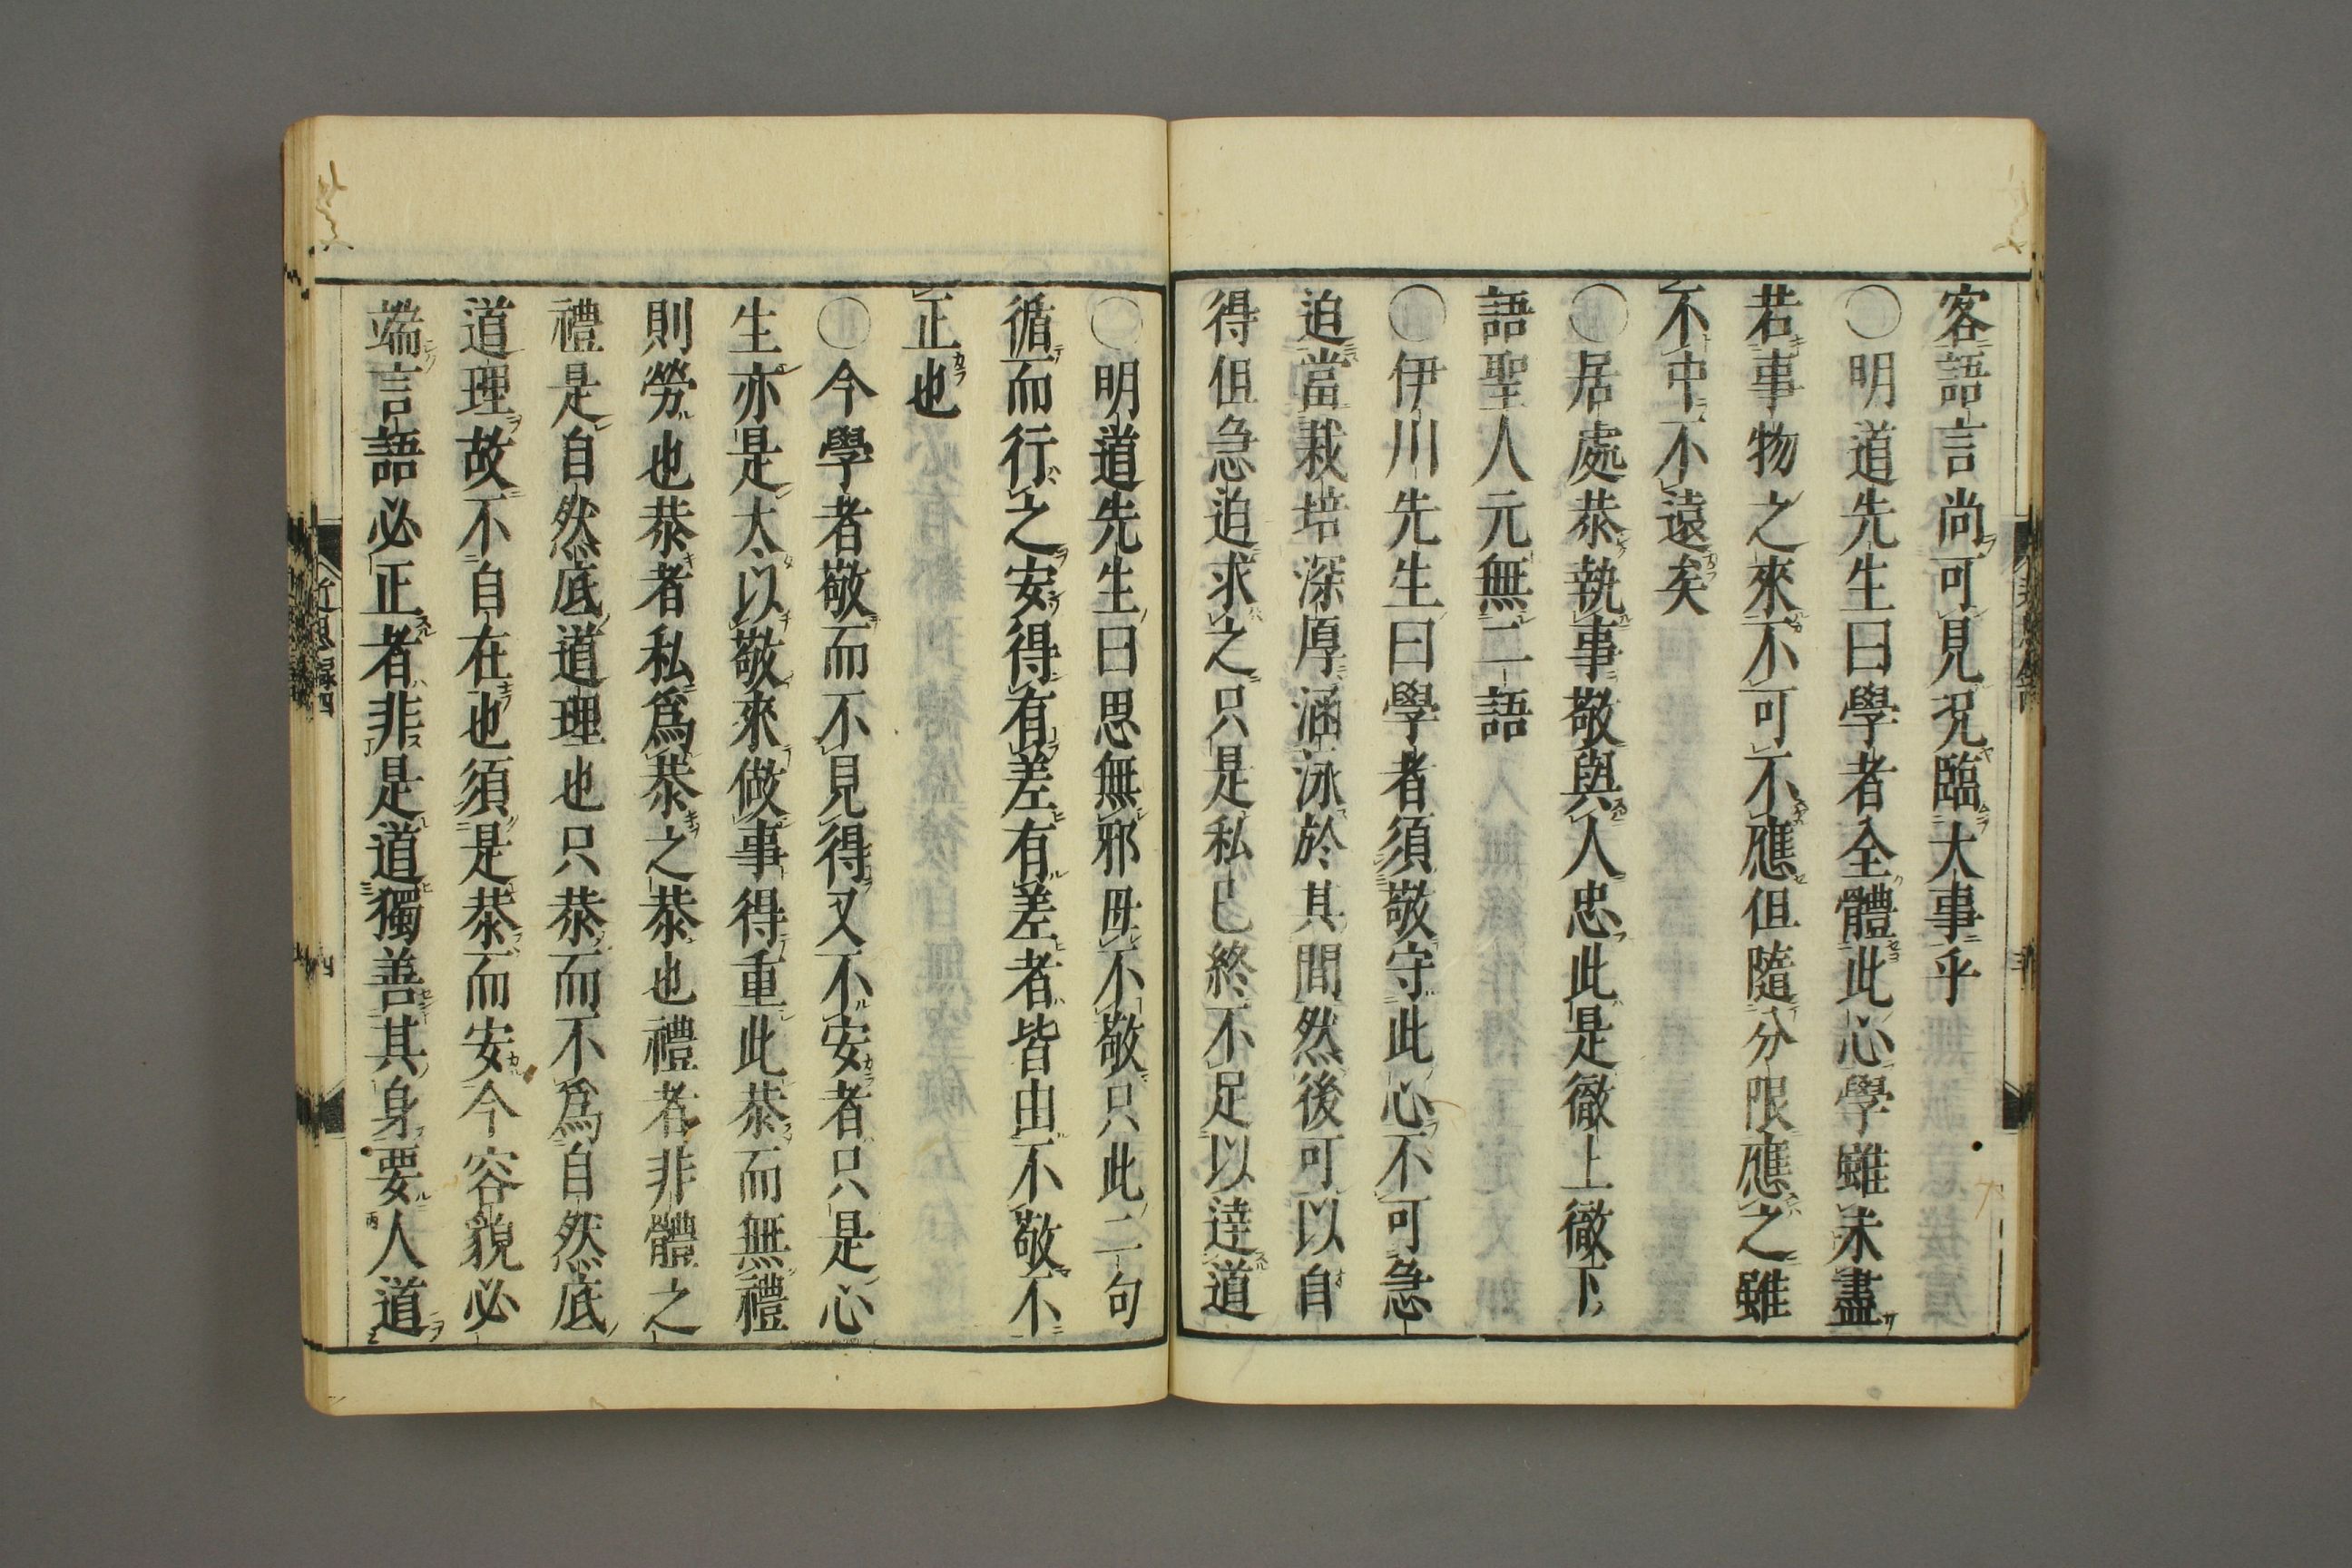 客語言尚可見况臨大事乎
〇明道先生曰學者全體此心學雖未盡
若事物之來不可不應但隨分限應之雖
不中不遠矣
〇居處恭執事敬與人忠此是徹上徹下
語聖人元無二語
〇伊川先生曰學者須敬守此心不可急
迫當栽培深厚涵泳於其間然後可以自
得但急迫求之只是私已終不足以達道
〇明道先生曰思無邪毋不敬只此二句
循而行之安得有差有差者皆由不敬不
正也
〇今學者敬而不見得又不安者只是心
生亦是太以敬來做事得重此恭而無禮
則勞也恭者私爲恭之恭也禮者非體之
禮是自然底道理也只恭而不爲自然底
道理故不自在也須是恭而安今容貌必
端言語必正者非是道獨善其身要人道
近思録四
四